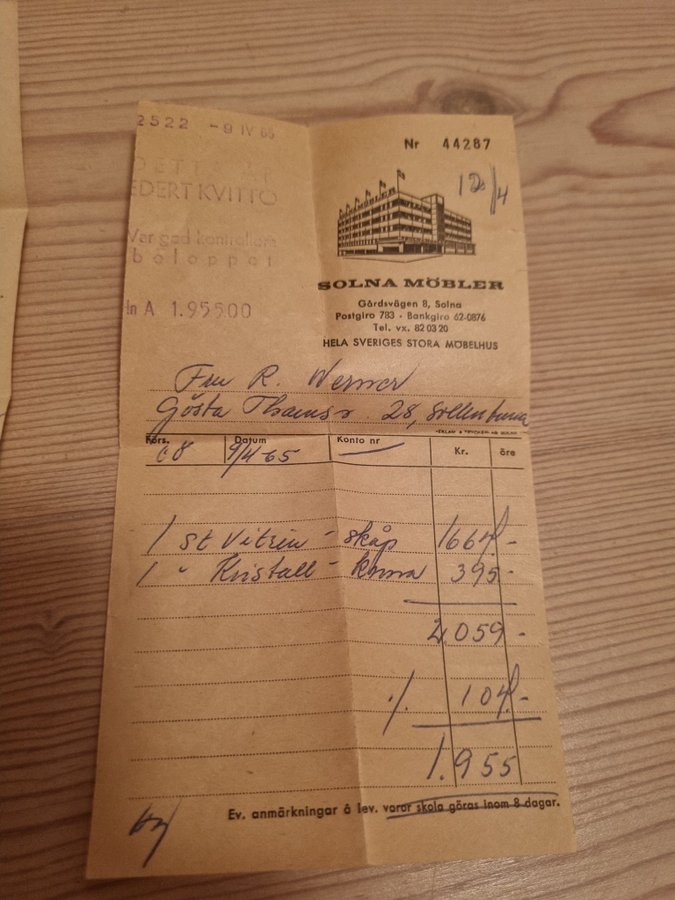 2522 -9 IV 65
DETT ÄR
EDERT KVITTO
Var god kontrollera
beloppet
In A 1.95500
Nr 44287
12/4
SOLNA MÖBLER
Gårdsvägen 8, Solna
Postgiro 783 · Bankgiro 62-0876
Tel. vx. 82 03 20
HELA SVERIGES STORA MÖBELHUS
Fru R. Werner
Gösta 28, Sollentuna
Förs. Datum Konto nr Kr. öre
68 9/4-65
1 st Vitrin-skåp 1664.-
1 " Kristall-krona 395.-
2,059.-
·/. 104.-
1.955
Ev. anmärkningar å lev. varor skola göras inom 8 dagar.